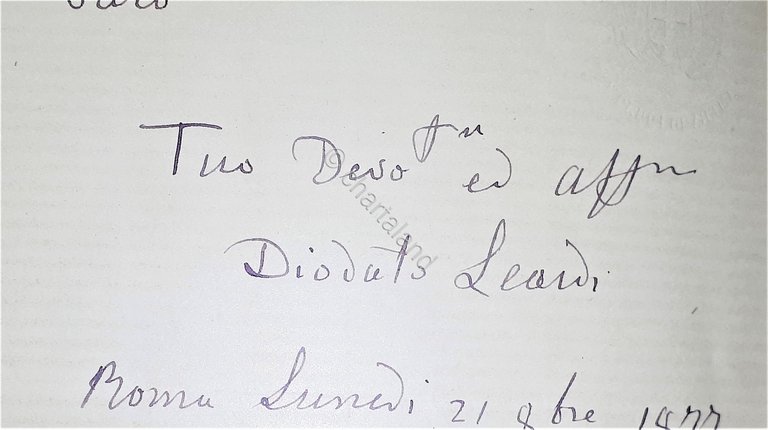 Tuo Devo ed affm
Diodato Leardi
Roma Lunedì 21 8bre
© chartaland